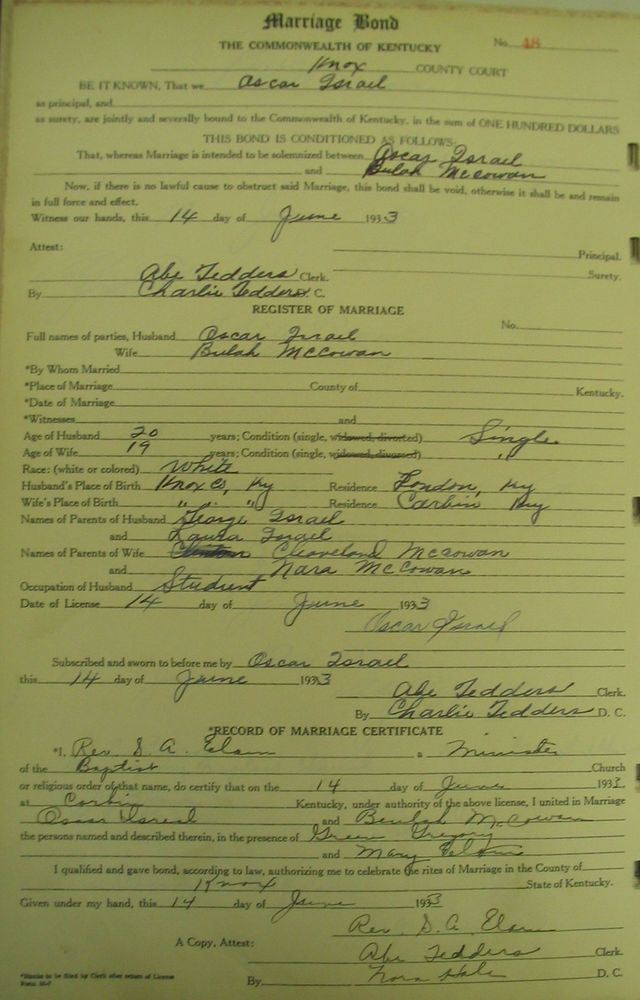 Marriage Bond
THE COMMONWEALTH OF KENTUCKY No. 48
Knox COUNTY COURT
BE IT KNOWN, That we Oscar Israel
as principal, and
as surety, are jointly and severally bound to the Commonwealth of Kentucky, in the sum of ONE HUNDRED DOLLARS
THIS BOND IS CONDITIONED AS FOLLOWS:
That, whereas Marriage is intended to be solemnized between Oscar Israel
and Bulah McCowan
Now, if there is no lawful cause to obstruct said Marriage, this bond shall be void, otherwise it shall be and remain
in full force and effect.
Witness our hands, this 14 day of June 1933
Attest:
Principal.
Abe Tedders Clerk. Surety.
By Charlie Tedders D. C.
REGISTER OF MARRIAGE
No.
Full names of parties, Husband Oscar Israel
Wife Bulah McCowan
*By Whom Married
*Place of Marriage County of Kentucky.
*Date of Marriage
*Witnesses and
Age of Husband 20 years; Condition (single, widowed, divorced) Single
Age of Wife 19 years; Condition (single, widowed, divorced) "
Race: (white or colored) White
Husband's Place of Birth Knox Co, Ky Residence London, Ky
Wife's Place of Birth " " " Residence Corbin Ky
Names of Parents of Husband George Israel
and Laura Israel
Names of Parents of Wife Clinton Cleaveland McCowan
and Nara McCowan
Occupation of Husband Student
Date of License 14 day of June 1933
Oscar Israel
Subscribed and sworn to before me by Oscar Israel
this 14 day of June 1933
Abe Tedders Clerk.
By Charlie Tedders D. C.
*RECORD OF MARRIAGE CERTIFICATE
*I, Rev. S. A. Elam a Minister
of the Baptist Church
or religious order of that name, do certify that on the 14 day of June 1933
at Corbin Kentucky, under authority of the above license, I united in Marriage
Oscar Isreal and Beulah McCowan
the persons named and described therein, in the presence of Green Gregory
and Mary
I qualified and gave bond, according to law, authorizing me to celebrate the rites of Marriage in the County of
Knox State of Kentucky.
Given under my hand, this 14 day of June 1933
Rev. S. A. Elam
A Copy, Attest: Abe Tedders Clerk.
By Nora Hale D. C.
*Blanks to be filed by Clerk after return of License